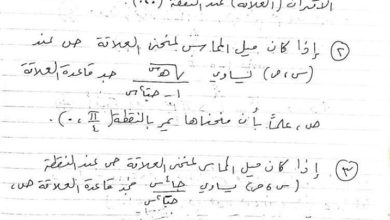 الاقتران (العلاقة) عند النقطة (٠،٠)
② إذا كان ميل المماس لمنحنى العلاقة ص عند
(س، ص) يساوي √هـس / ١ - جتا٢س جد قاعدة العلاقة
ص، علماً بأن منحناها يمر بالنقطة (π/٤، ٠).
③ إذا كان ميل المماس لمنحنى العلاقة ص عند النقطة
(س، ص) يساوي جا٢س / جتا٢س جد قاعدة العلاقة ص،